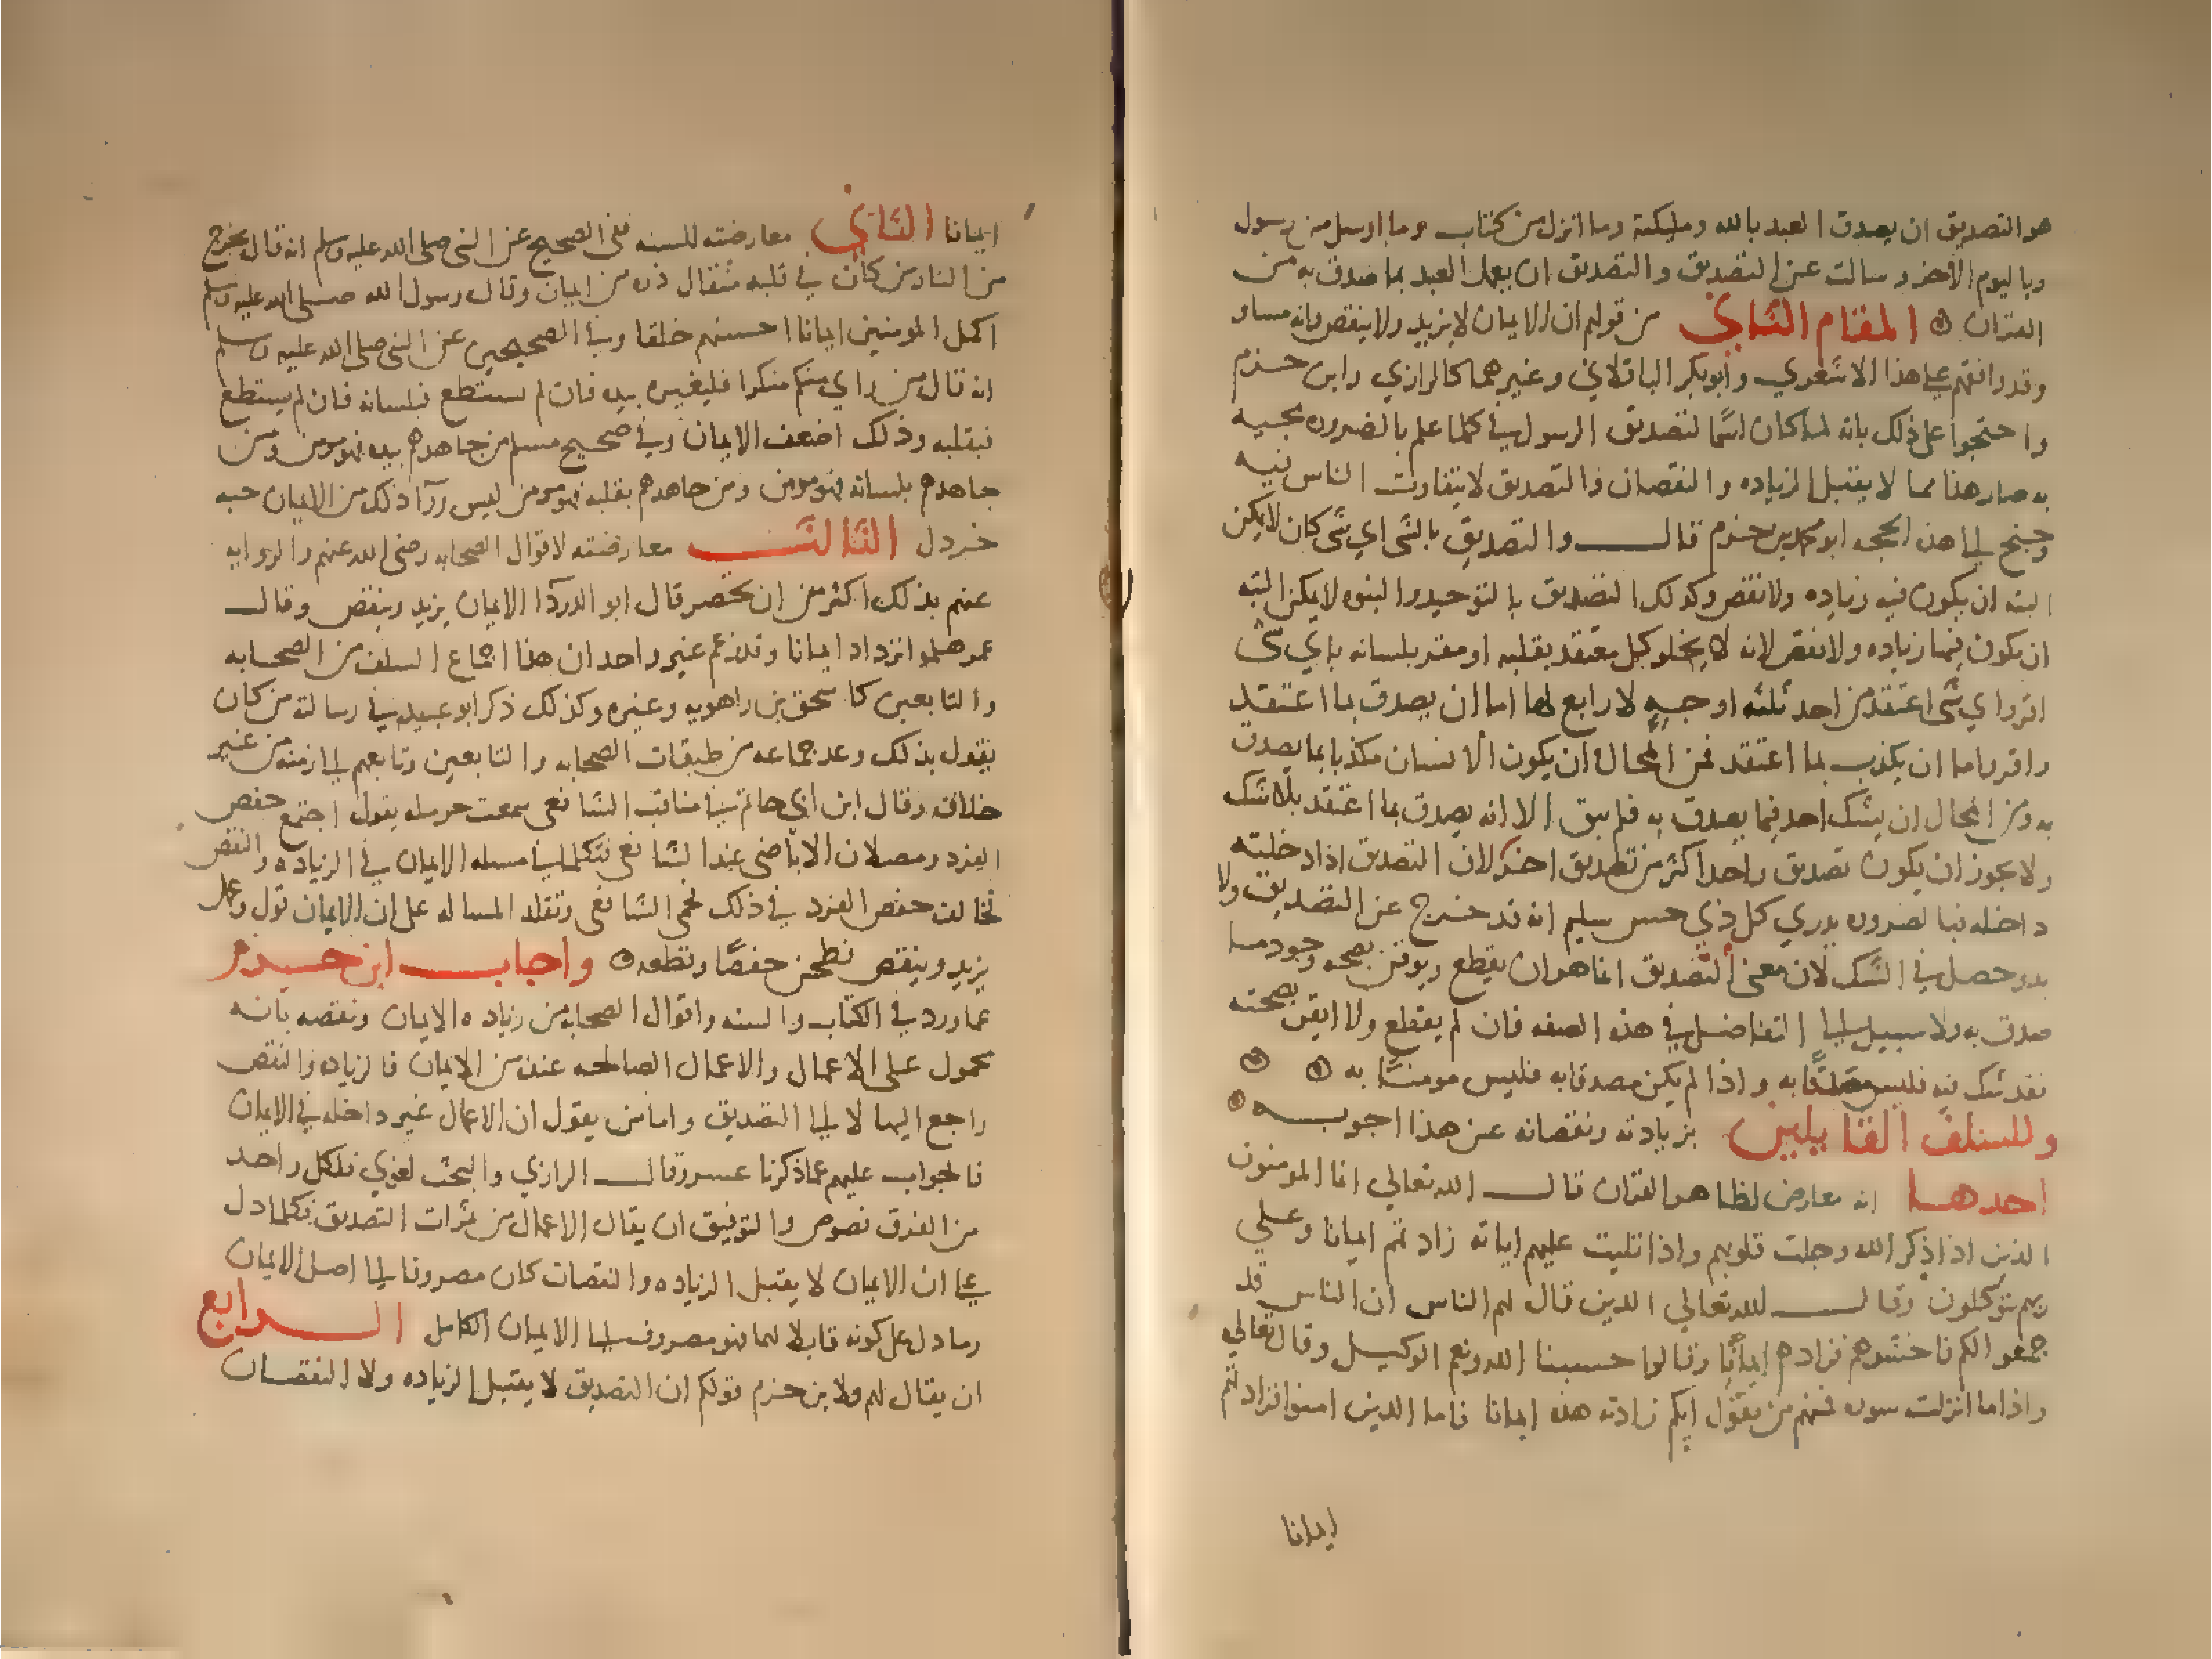 هو التصديق ان يصدق العبد بالله ومليكته وما انزل من كتاب وما ارسل من رسول
وباليوم الاخر وسالت عن التصديق والتصديق ان يعمل العبد بما صدق به من
القران ۞ المقام الثاني من قولهم ان الايمان لا يزيد ولا ينقص وانه مساو
وقد وافقهم علي هذا الاشعري وأبو بكر الباقلاني وغيرهما كالرازي وابن حزم
واحتجوا على ذلك بانه لما كان اسما لتصديق الرسول في كلما علم بالضروره مجيه
به صار هذا مما لا يقبل الزياده والنقصان والتصديق لا يتفاوت الناس فيه
وجنح الي هذه الحجه ابو محمد بن حزم قال والتصديق بالشى اي شى كان لا يمكن
البته ان يكون فيه زياده ولا نقص وكذلك التصديق بالتوحيد والنبوه لا يمكن البته
ان يكون فيها زياده ولا نقص لانه لا يخلو كل معتقد بقلبه او مقر بلسانه باي شى
اقر واي شى اعتقد من احد ثلثه اوجهٍ لا رابع لها اما ان يصدق بما اعتقد
واقر واما ان يكذب بما اعتقد فمن المحال ان يكون الانسان مكذبا بما يصدق
به ومن المحال ان يشك احد فيما يصدق به فلم يبق الا انه يصدق بما اعتقد بلا شك
ولا يجوز ان يكون تصديق واحد اكثر من تصديق اخر لان التصديق اذا دخلته
داخله فبالضروره يدري كل ذي حس سليم انه قد خرج عن التصديق ولا
بد وحصل في الشك لان معنى التصديق انما هو ان يقطع ويوقن بصحه وجود ما
صدق به ولا سبيل الي التفاضل في هذه الصفه فان لم يقطع ولا ايقن بصحته
فقد شك فيه فليس مصدقا به واذا لم يكن مصدقا به فليس مومنًا به ۞ ۞
وللسلف القايلين بزيادته ونقصانه عن هذا اجوبه ۞
احدها انه معارض لظاهر القران قال الله تعالي انما المومنون
الذين اذا ذكر الله وجلت قلوبهم واذا تليت عليهم اياته زادتهم ايمانا وعلي
ربهم يتوكلون وقال الله تعالي الذين قال لهم الناس ان الناس قد
جمعوا لكم فاخشوهم فزادهم ايمانًا وقالوا حسبنا الله ونعم الوكيل وقال تعالي
واذا ما انزلت سوره فمنهم من يقول ايكم زادته هذه ايمانا فاما الذين امنوا فزادتهم
ايمانا
ايمانا الثاني معارضته للسنه ففي الصحيح عن النبي صلى الله عليه وسلم انه قال يخرج
من النار من كان في قلبه مثقال ذره من ايمان وقال رسول الله صلى الله عليه وسلم
اكمل المومنين ايمانا احسنهم خلقا وفي الصحيحين عن النبي صلى الله عليه وسلم
انه قال من راي منكم منكرا فليغيره بيده فان لم يستطع فبلسانه فان لم يستطع
فبقلبه وذلك اضعف الايمان وفي صحيح مسلم من جاهدهم بيده فهو مومن ومن
جاهدهم بلسانه فهو مومن ومن جاهدهم بقلبه فهو مومن ليس ورآ ذلك من الايمان حبه
خردل الثالث معارضته لاقوال الصحابه رضي الله عنهم والروايه
عنهم بذلك اكثر من ان تحصر قال ابو الدردآ الايمان يزيد وينقص وقال
عمر هلموا نزداد ايمانا وقد زعم غير واحد ان هذا اجماع السلف من الصحابه
والتابعين كاسحق بن راهويه وغيره وكذلك ذكر ابو عبيد في رسالته من كان
يقول بذلك وعد جماعه من طبقات الصحابه والتابعين وتابعهم الي ازمنته من غير
خلاف وقال ابن ابي حاتم في مناقب الشافعي سمعت حرمله يقول اجتمع حفص
الفرد ومصلان الاباضي عند الشافعي فتكلما في مسله الايمان في الزياده والنقص
فخالف حفص الفرد في ذلك فحمي الشافعي وتقلد المساله على ان الايمان قول وعمل
يزيد وينقص فطحن حفصًا وقطعه ۞ واجاب ابن حزم
عما ورد في الكتاب والسنه واقوال الصحابه من زياده الايمان ونقصه بانه
محمول على الاعمال والاعمال الصالحه عنده من الايمان فالزياده والنقص
راجع اليها لا الي التصديق واما من يقول ان الاعمال غير داخله في الايمان
فالجواب عليهم عما ذكرنا عسر وقال الرازي والبحث لغوي فلكل واحد
من الفرق نصوص والتوفيق ان يقال الاعمال من ثمرات التصديق فكلما دل
علي ان الايمان لا يقبل الزياده والنقصان كان مصروفا الي اصل الايمان
وما دل على كونه قابلا لهما فهو مصروف الي الايمان الكامل الرابع
ان يقال لهم ولابن حزم قولكم ان التصديق لا يقبل الزياده ولا النقصان